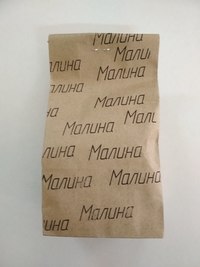 Малина
Малина
алина
Малина
алина
Мали
Малина
алина
Малина
Малина
Малина
алина
Малина